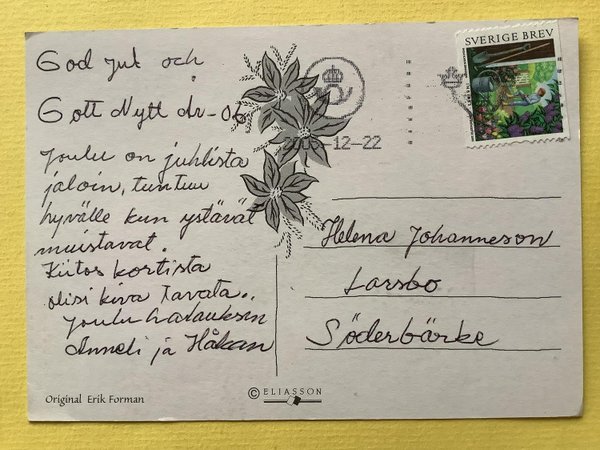 God jul och
Gott Nytt år -06
Joulu on juhlista
jaloin, tuntuu
hyvälle kun ystävät
muistavat.
Kiitos kortista
olisi kiva tavata..
Joulu halauksin
Anneli ja Håkan
Original Erik Forman
SVERIGE BREV
2005-12-22
Helena Johanneson
Larsbo
Söderbärke
© ELIASSON